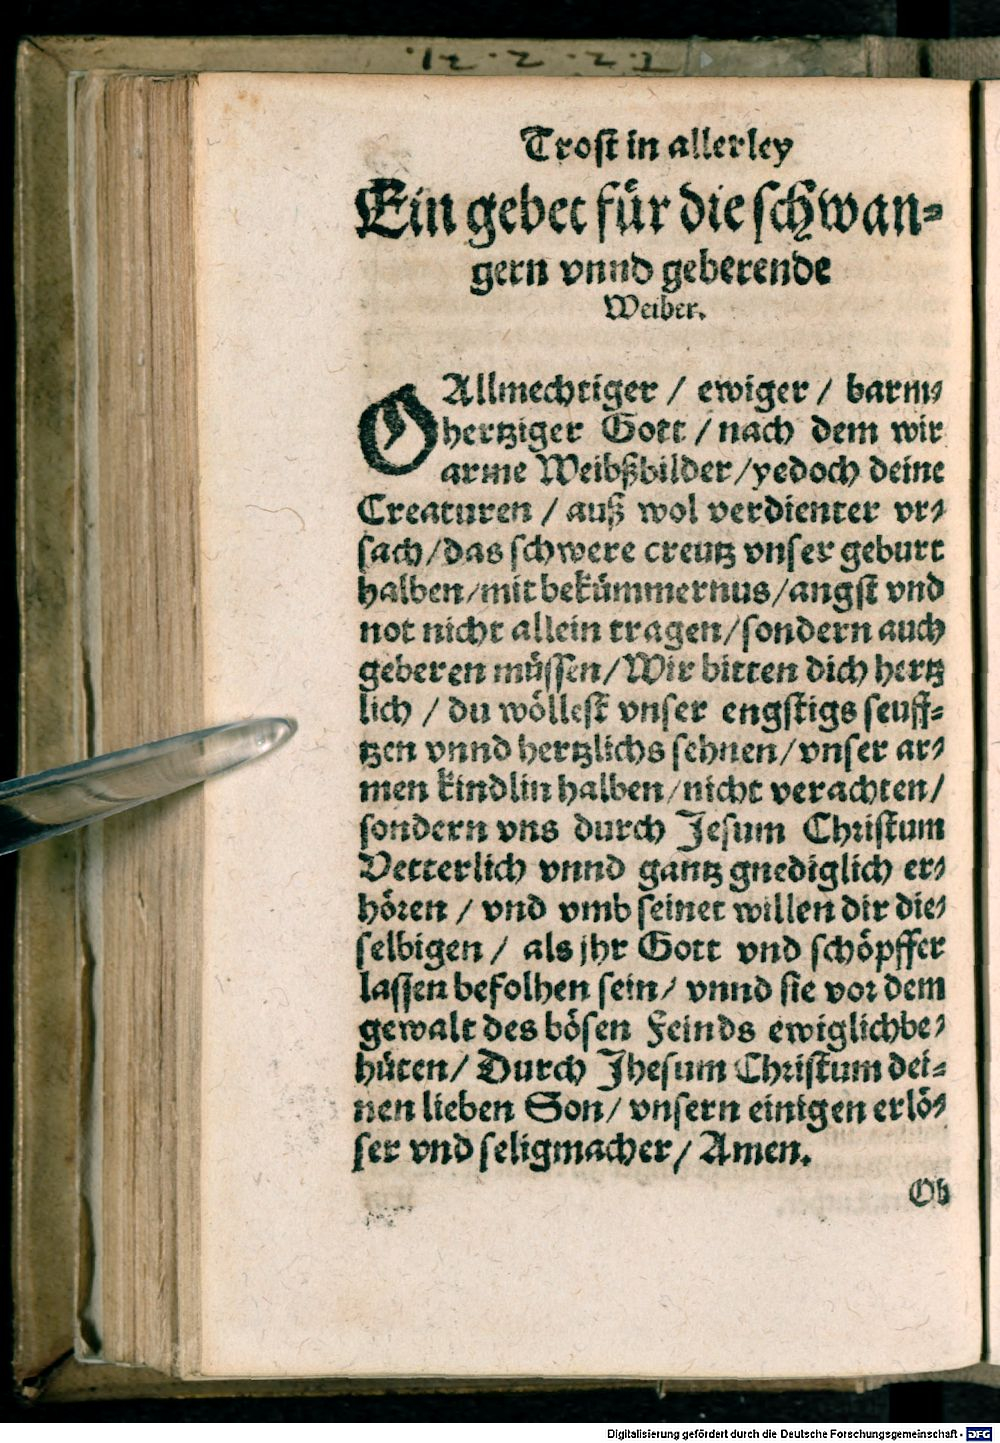 Trost in allerley
Ein gebet für die schwan-
gern vnnd geberende
Weiber.
O Allmechtiger / ewiger / barm-
hertziger Gott / nach dem wir
arme Weibßbilder / yedoch deine
Creaturen / auß wol verdienter vr-
sach / das schwere creutz vnser geburt
halben / mit bekümmernus / angst vnd
not nicht allein tragen / sondern auch
geberen müssen / Wir bitten dich hertz
lich / du wöllest vnser engstigs seuff-
tzen vnnd hertzlichs sehnen / vnser ar-
men kindlin halben / nicht verachten /
sondern vns durch Jesum Christum
Vetterlich vnnd gantz gnediglich er-
hören / vnd vmb seinet willen dir die-
selbigen / als jhr Gott vnd schöpffer
lassen befolhen sein / vnnd sie vor dem
gewalt des bösen Feinds ewiglich be-
hüten / Durch Jhesum Christum dei-
nen lieben Son / vnsern einigen erlö-
ser vnd seligmacher / Amen.
Ob
Digitalisierung gefördert durch die Deutsche Forschungsgemeinschaft - DFG